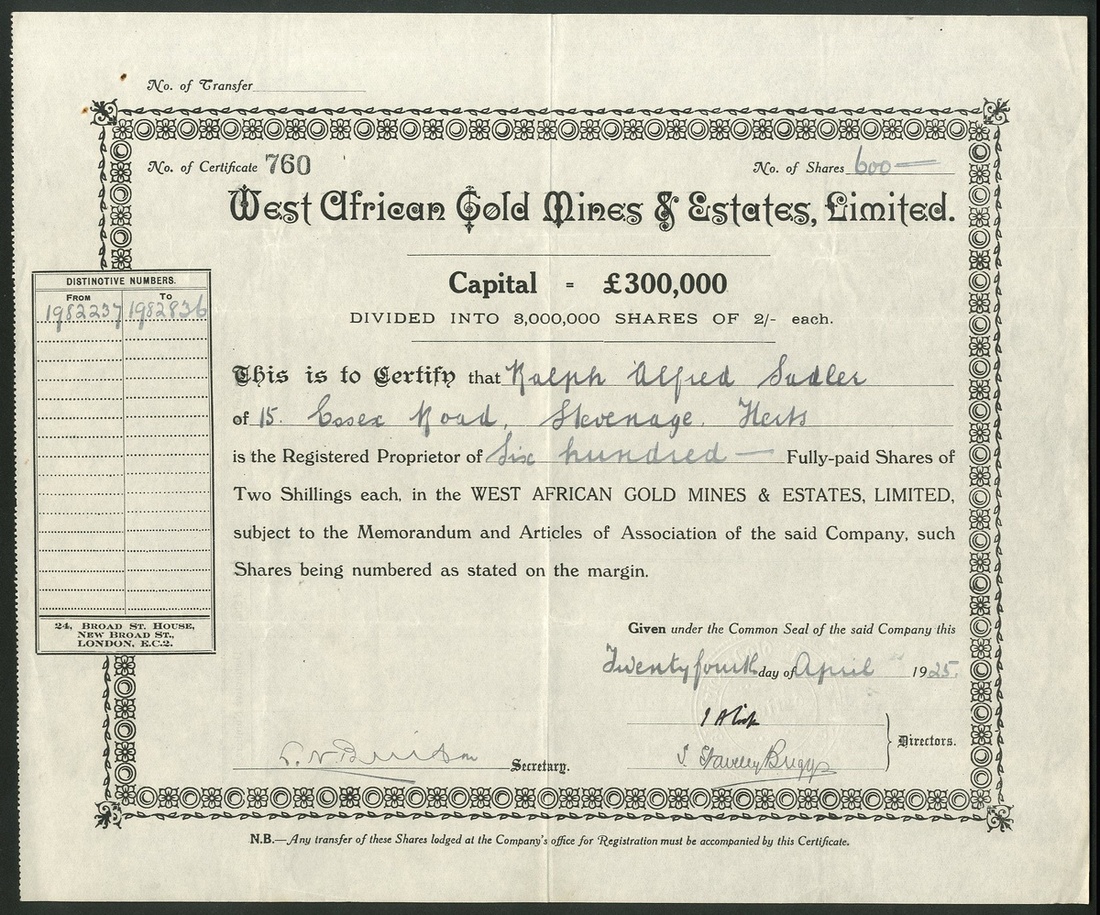 No. of Transfer
No. of Certificate 760
No. of Shares 600 —
West African Gold Mines & Estates, Limited.
Capital = £300,000
DIVIDED INTO 3,000,000 SHARES OF 2/- each.
DISTINCTIVE NUMBERS.
FROM TO
1982237 1982836
This is to Certify that Ralph Alfred Sadler
of 15. Essex Road, Stevenage. Herts
is the Registered Proprietor of Six hundred — Fully-paid Shares of
Two Shillings each, in the WEST AFRICAN GOLD MINES & ESTATES, LIMITED,
subject to the Memorandum and Articles of Association of the said Company, such
Shares being numbered as stated on the margin.
24, BROAD ST. HOUSE,
NEW BROAD ST.,
LONDON, E.C.2.
Given under the Common Seal of the said Company this
Twentyfourth day of April 1925.
Directors.
Briggs
Secretary.
N.B.—Any transfer of these Shares lodged at the Company's office for Registration must be accompanied by this Certificate.